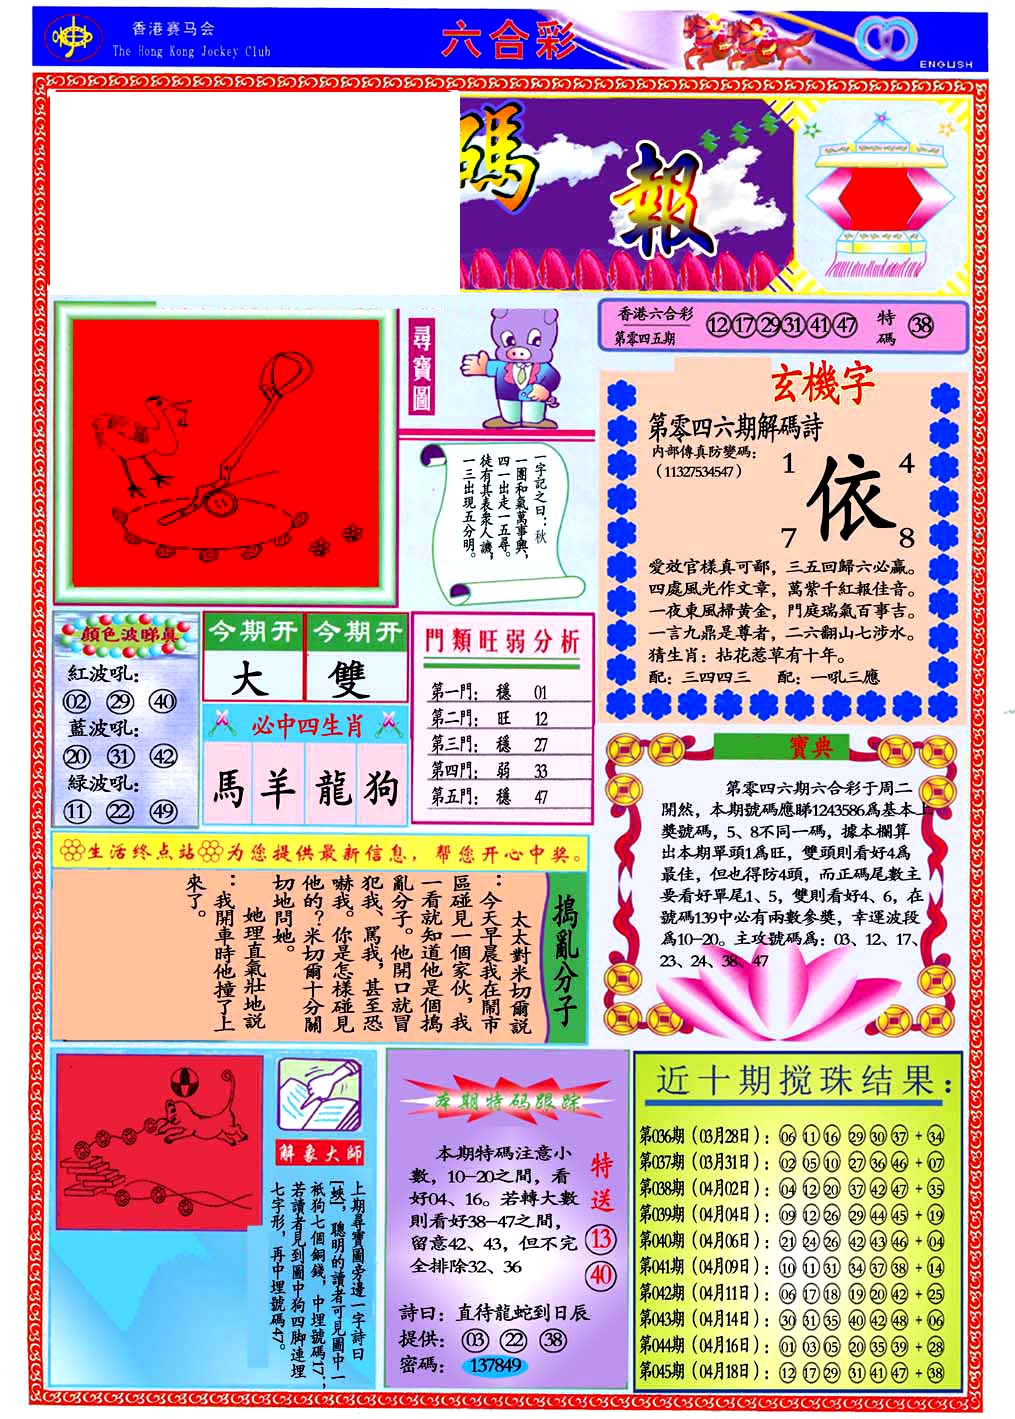 香港赛马会
The Hong Kong Jockey Club
六合彩
ENGLISH
碼報
香港六合彩
第零四五期
12 17 29 31 41 47
特碼 38
尋寶圖
一字記之曰：秋
一團和氣萬事興，
四一出走一五尋。
徒有其表衆人譏，
一三出現五分明。
玄機字
第零四六期解碼詩
内部傳真防變碼：
（11327534547）
1 4
依
7 8
愛效官樣真可鄙，三五回歸六必贏。
四處風光作文章，萬紫千紅報佳音。
一夜東風掃黄金，門庭瑞氣百事吉。
一言九鼎是尊者，二六翻山七涉水。
猜生肖：拈花惹草有十年。
配：三四四三 配：一吼三應
顔色波睇真
紅波吼：
02 29 40
藍波吼：
20 31 42
緑波吼：
11 22 49
今期开 今期开
大 雙
必中四生肖
馬 羊 龍 狗
門類旺弱分析
第一門： 穩 01
第二門： 旺 12
第三門： 穩 27
第四門： 弱 33
第五門： 穩 47
寶典
第零四六期六合彩于周二
開然，本期號碼應睇1243586爲基本上
獎號碼，5、8不同一碼，據本欄算
出本期單頭1爲旺，雙頭則看好4爲
最佳，但也得防4頭，而正碼尾數主
要看好單尾1、5，雙則看好4、6，在
號碼139中必有兩數參獎，幸運波段
爲10-20。主攻號碼爲：03、12、17、
23、24、38、47
生活终点站 为您提供最新信息，帮您开心中奖。
搗亂分子
太太對米切爾説
：今天早晨我在鬧市
區碰見一個家伙，我
一看就知道他是個搗
亂分子。他開口就冒
犯我、駡我，甚至恐
嚇我。你是怎樣碰見
他的？米切爾十分關
切地問她。
她理直氣壯地説
：我開車時他撞了上
來了。
解象大师
上期尋寶圖旁邊一字詩曰
[蛱]，聰明的讀者可見圖中一
衹狗七個銅錢，中埋號碼17；
若讀者見到圖中狗四脚連埋
七字形，再中埋號碼47。
本期特码跟踪
本期特码注意小
數，10-20之間，看
好04、16。若轉大數
則看好38-47之間，
留意42、43，但不完
全排除32、36
特送
13
40
詩曰：直待龍蛇到日辰
提供：03 22 38
密碼：137849
近十期搅珠结果：
第036期（03月28日）：06 11 16 29 30 37 + 34
第037期（03月31日）：02 05 10 27 36 46 + 07
第038期（04月02日）：04 12 20 37 42 47 + 35
第039期（04月04日）：09 12 26 29 44 45 + 19
第040期（04月06日）：21 24 26 42 43 46 + 04
第041期（04月09日）：10 11 31 34 37 38 + 14
第042期（04月11日）：06 17 18 19 20 42 + 25
第043期（04月14日）：30 31 35 40 42 48 + 06
第044期（04月16日）：01 03 05 20 35 39 + 28
第045期（04月18日）：12 17 29 31 41 47 + 38